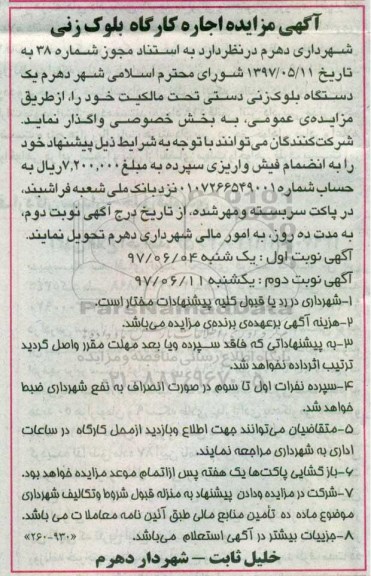 آگهی مزایده اجاره کارگاه بلوک زنی
شهرداری دهرم در نظر دارد به استناد مجوز شماره ۳۸ به
تاریخ ۱۳۹۷/۰۵/۱۱ شورای محترم اسلامی شهر دهرم یک
دستگاه بلوک زنی دستی تحت مالکیت خود را، از طریق
مزایده‌ی عمومی، به بخش خصوصی واگذار نماید.
شرکت‌کنندگان می‌توانند با توجه به شرایط ذیل پیشنهاد خود
را به انضمام فیش واریزی سپرده به مبلغ ۷,۲۰۰,۰۰۰ ریال به
حساب شماره ۰۱۰۷۲۶۶۵۴۹۰۰۱ نزد بانک ملی شعبه فراشبند،
در پاکت سربسته و مهر شده، از تاریخ درج آگهی نوبت دوم،
به مدت ده روز، به امور مالی شهرداری دهرم تحویل نمایند.
آگهی نوبت اول : یک شنبه ۹۷/۰۶/۰۴
آگهی نوبت دوم : یکشنبه ۹۷/۰۶/۱۱
۱-شهرداری در رد یا قبول کلیه پیشنهادات مختار است.
۲-هزینه آگهی برعهده‌ی برنده‌ی مزایده می‌باشد.
۳-به پیشنهاداتی که فاقد سپرده ویا بعد مهلت مقرر واصل گردید
ترتیب اثر داده نخواهد شد.
۴-سپرده نفرات اول تا سوم در صورت انصراف به نفع شهرداری ضبط
خواهد شد.
۵-متقاضیان می‌توانند جهت اطلاع وبازدید ازمحل کارگاه در ساعات
اداری به شهرداری مراجعه نمایند.
۶-بازگشایی پاکت‌ها یک هفته پس از اتمام موعد مزایده خواهد بود.
۷-شرکت در مزایده ودادن پیشنهاد به منزله قبول شروط وتکالیف شهرداری
موضوع ماده ده تأمین منابع مالی طبق آئین نامه معاملات می باشد.
۸-جزییات بیشتر در آگهی استعلام می‌باشد. «۲۶۰-۹۳۰»
خلیل ثابت – شهردار دهرم